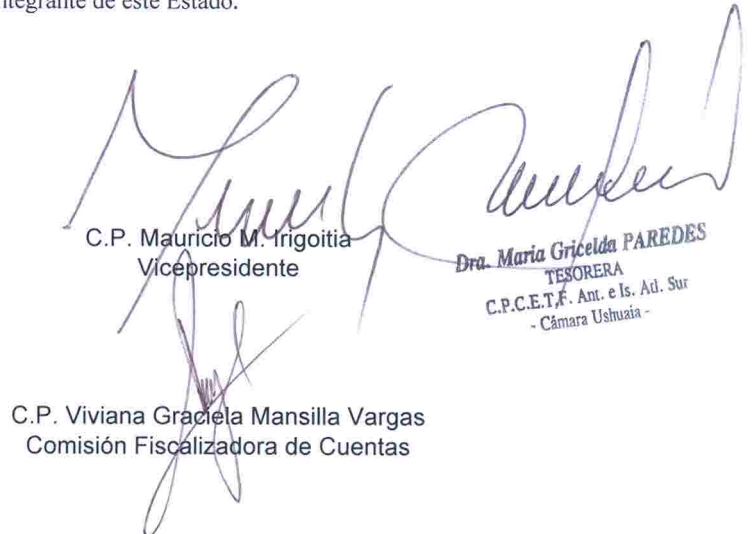 integrante de este Estado.
C.P. Mauricio M. Irigoitia
Vicepresidente
Dra. Maria Gricelda PAREDES
TESORERA
C.P.C.E.T.F. Ant. e Is. Atl. Sur
- Cámara Ushuaia -
C.P. Viviana Graciela Mansilla Vargas
Comisión Fiscalizadora de Cuentas